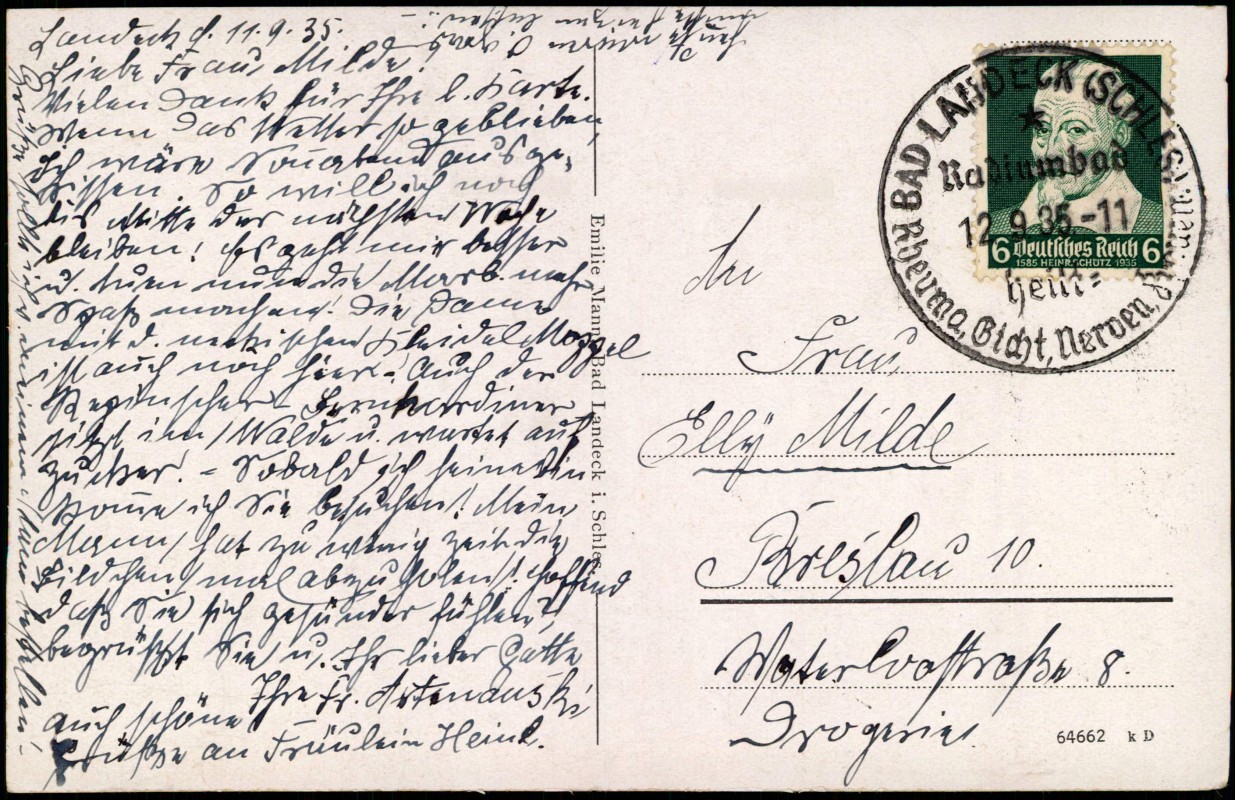 Landeck d. 11.9.35.
Liebe Frau Milde!
Vielen Dank für Ihre l. Karte.
Wenn das Wetter so geblieben
ich wäre Sonnabend ausge-
rissen. So will ich noch
bis Mitte der nächsten Woche
bleiben! Es geht mir besser
u. tuen nun die mehr
Spaß machen! Die Dame
mit d. Moppel
ist auch noch hier! Auch der
Bernhardiner
sitzt im Walde u. wartet auf
Zucker. – Sobald ich heime bin
komme ich Sie besuchen! Mein
Mann hat zu wenig Zeit die
Bildchen mal abzuholen! Hoffend
daß Sie sich gesünder fühlen,
begrüßt Sie u. Ihr lieber Gatte
Ihre Fr.
auch schöne
Grüße an Fräulein Heinl.
Grüße soll ich v. meinem Mann bestellen!
Emilie Mann, Bad Landeck i. Schles.
BAD LANDECK (SCHLES)
Radiumbad
12.9.35.-11
heilt=
Rheuma, Gicht, Nerven,
6 Deutsches Reich 6
1585 HEINR.SCHÜTZ 1935
An
Frau
Elly Milde
Breslau 10.
Waterloostraße 8.
Drogerie
64662 k D